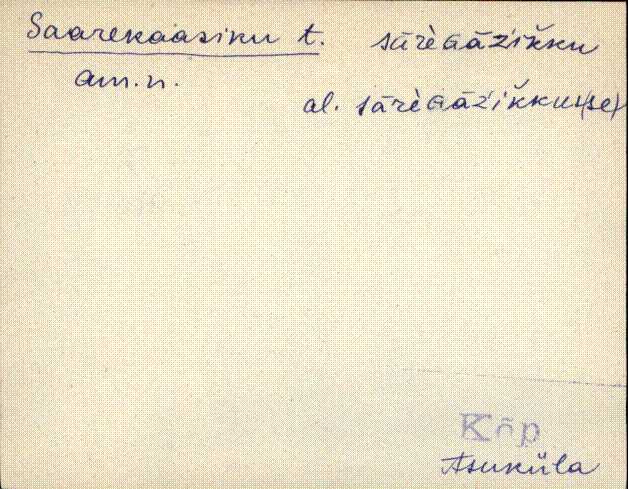 Saarekaasiku t. sārè͔Gāźik̆ku
am.n.
al. sārè͔Gāźik̆kus(se)
Kõp
Asuküla